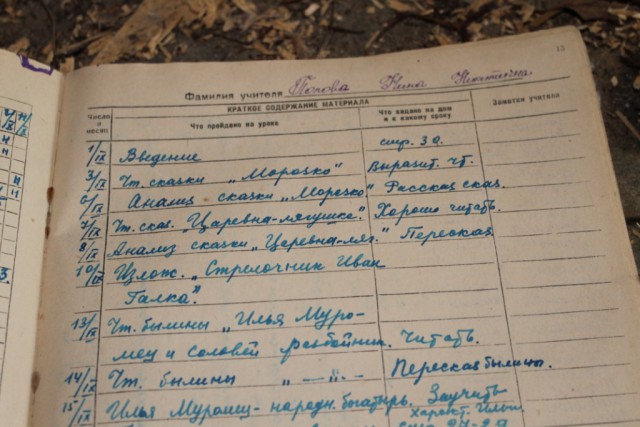 13
Фамилия учителя Попова Нина Никитична.
Число и месяц
КРАТКОЕ СОДЕРЖАНИЕ МАТЕРИАЛА
Что пройдено на уроке
Что задано на дом и к какому сроку
Заметки учителя
1/IX Введение стр. 3 а.
3/IX Чт. сказки „Морозко" Выразит. чт.
6/IX Анализ сказки „Морозко" Рассказ сказ.
7/IX Чт. сказ. „Царевна-лягушка." Хорошо читать.
8/IX Анализ сказки „Царевна-ляг." Пересказ
10/IX Излож. „Стрелочник Иван
Галка".
13/IX Чт. былины „Илья Муро-
мец и Соловей разбойник. Читать.
14/IX Чт. былины „ —„— Пересказ былины.
15/IX Илья Муромец - народн. богатырь. Заучить
характ. Ильи.